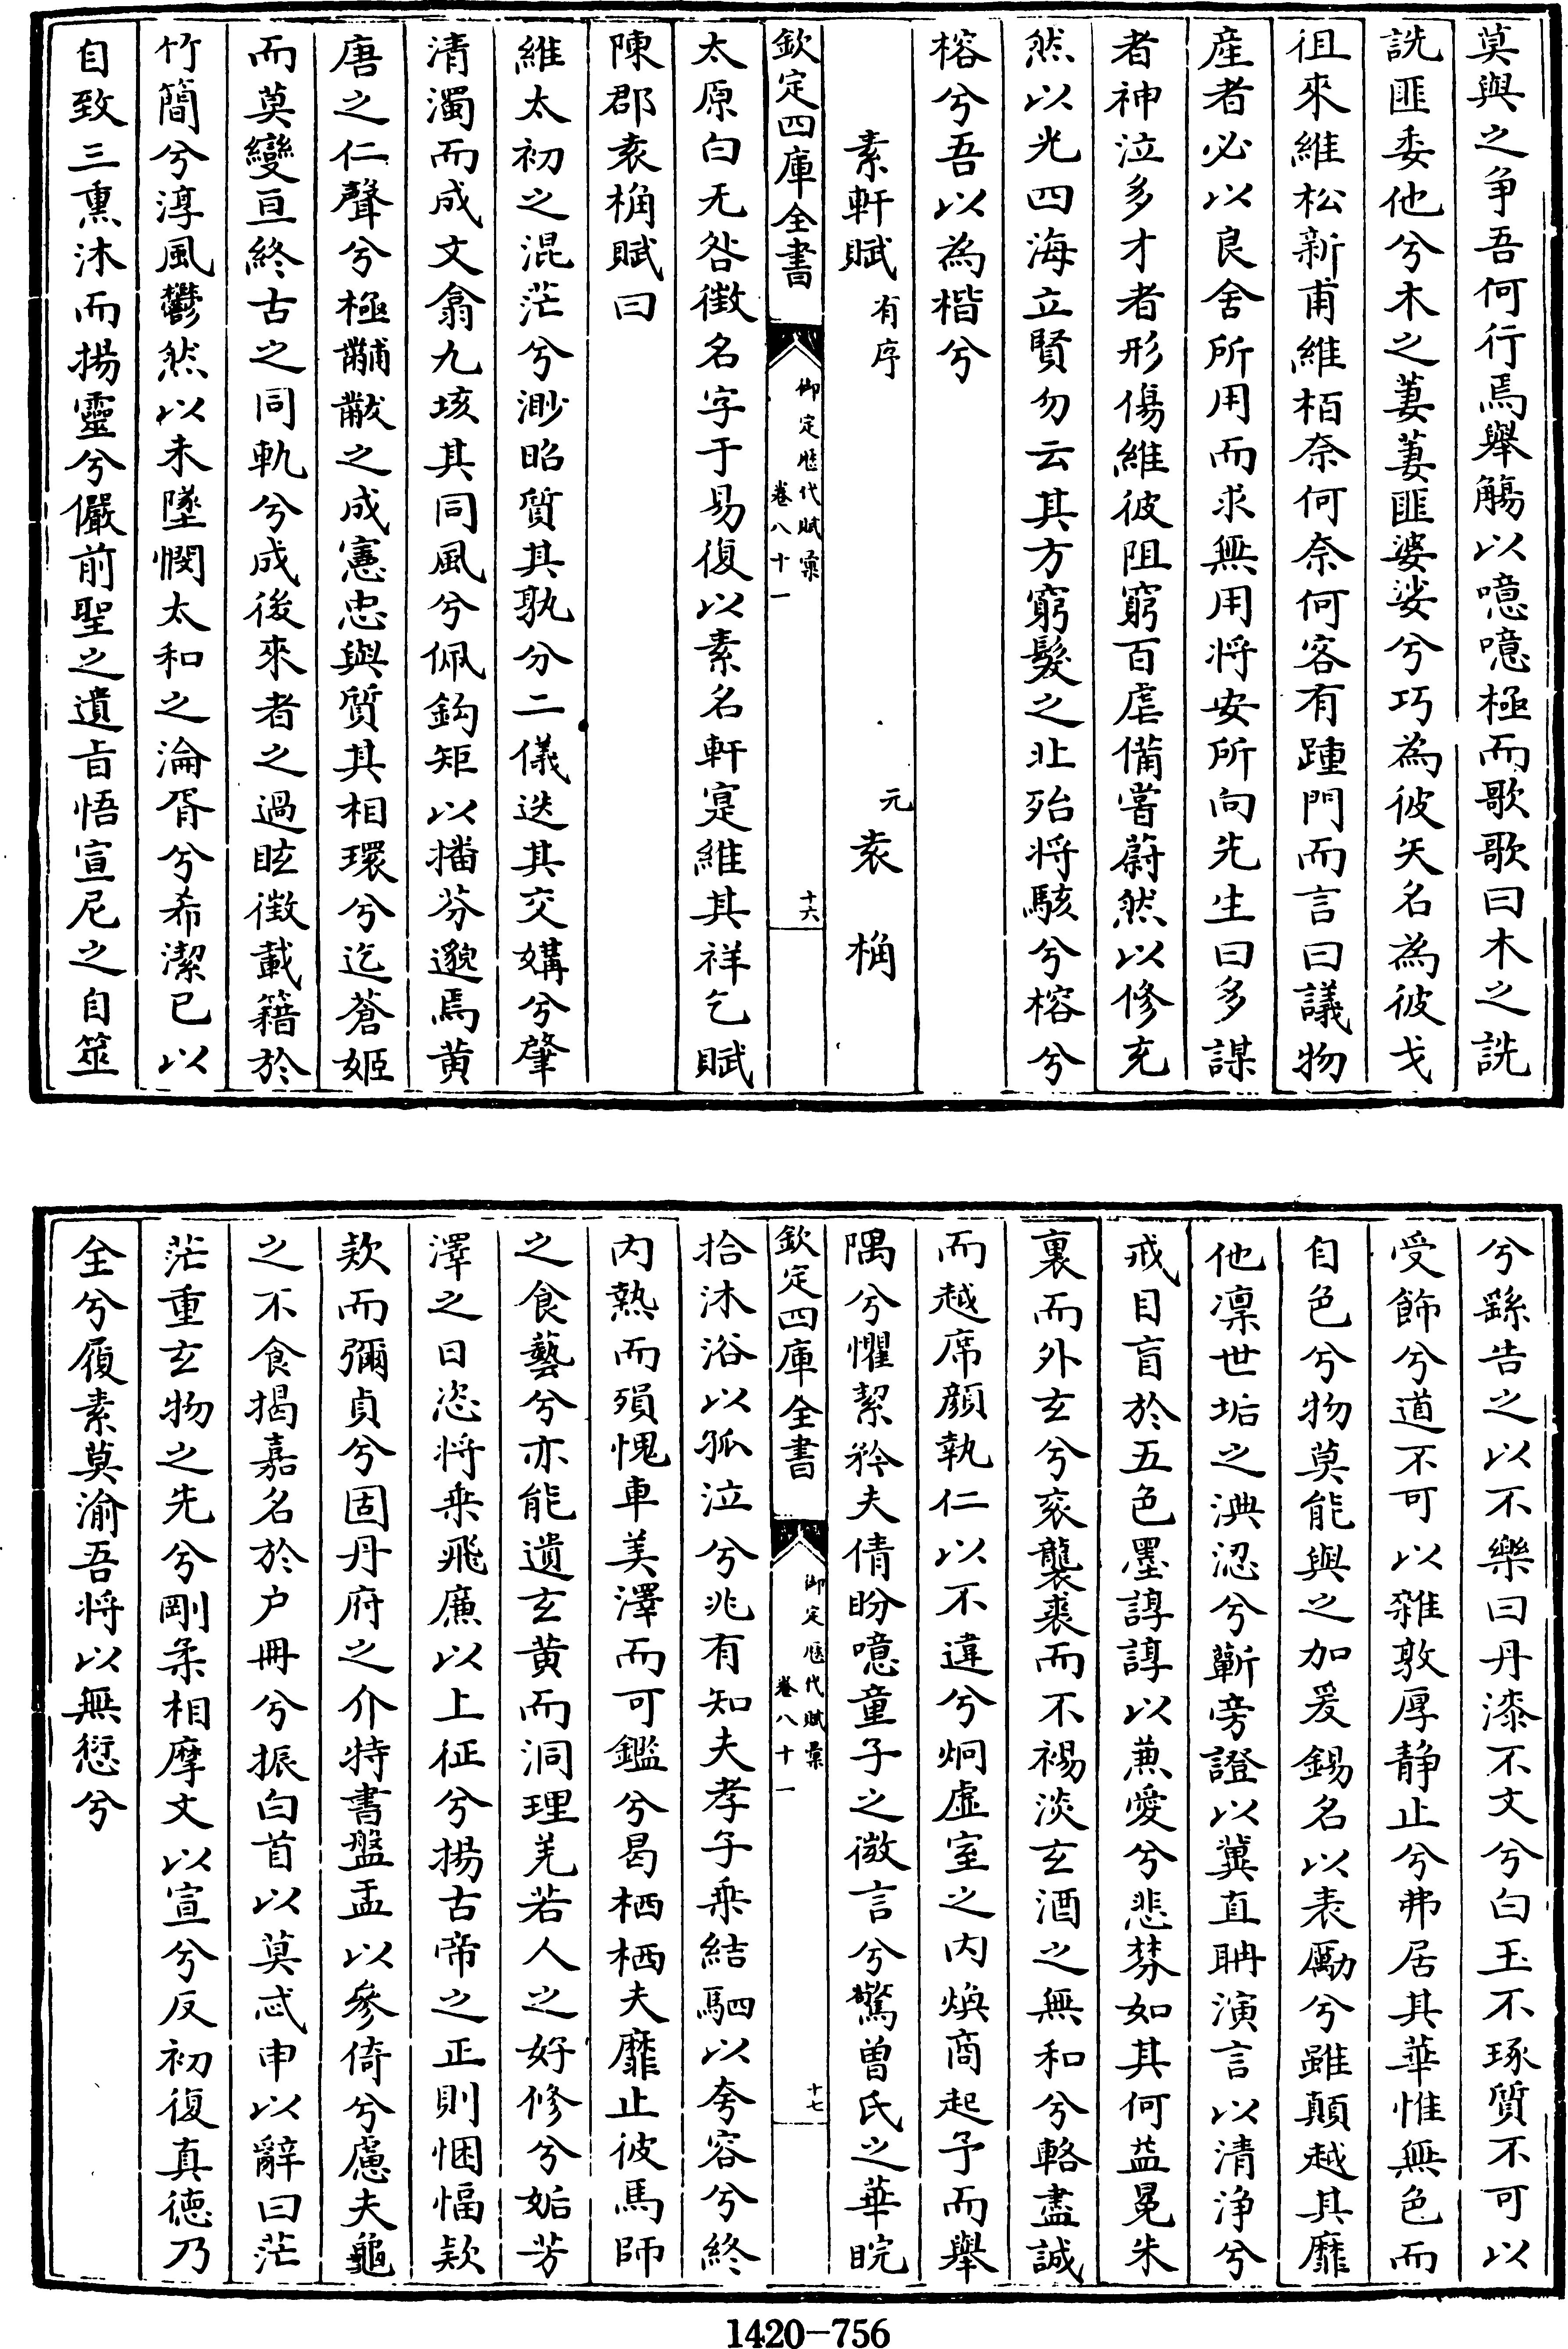 莫與之争吾何行焉舉觴以噫噫極而歌歌曰木之詵
詵匪委他兮木之萋萋匪婆娑兮巧為彼矢名為彼戈
徂來維松新甫維栢奈何奈何客有踵門而言曰議物
産者必以良舍所用而求無用将安所向先生曰多謀
者神泣多才者形傷維彼阻窮百虐備嘗蔚然以修充
然以光四海立賢勿云其方窮髮之北殆将駭兮榕兮
榕兮吾以為楷兮
素軒賦有序 元 袁桷
欽定四庫全書 御定歴代賦彙 卷八十一 十六
太原白无咎徴名字于易復以素名軒寔維其祥乞賦
陳郡袁桷賦曰
維太初之混茫兮渺昭質其孰分二儀迭其交媾兮肇
清濁而成文翕九垓其同風兮佩鈎矩以播芬邈焉黄
唐之仁聲兮極黼黻之成憲忠與質其相環兮迄蒼姬
而莫變亘終古之同軌兮成後來者之過眩徴載籍於
竹簡兮淳風鬱然以未墜憫太和之淪胥兮希潔已以
自致三熏沐而揚靈兮儼前聖之遺㫖悟宣尼之自筮
兮繇告之以不樂曰丹漆不文兮白玉不琢質不可以
受飾兮道不可以雜敦厚静止兮弗居其華惟無色而
自色兮物莫能與之加爰錫名以表勵兮雖顛越其靡
他凛世垢之淟涊兮蘄旁證以冀直聃演言以清浄兮
戒目盲於五色墨諄諄以兼愛兮悲棼如其何益冕朱
裏而外玄兮衮襲裘而不裼淡玄酒之無和兮輅盡誠
而越席顔執仁以不違兮炯虚室之内煥商起予而舉
隅兮懼絜矜夫倩盼噫童子之微言兮驚曾氏之華睆
欽定四庫全書 御定歴代賦彙 卷八十一 十七
拾沐浴以孤泣兮兆有知夫孝子乗結駟以夸容兮終
内熱而殞愧車美澤而可鑑兮曷栖栖夫靡止彼馬師
之食藝兮亦能遺玄黄而洞理羌若人之好修兮姤芳
澤之日恣将乗飛廉以上征兮揚古帝之正則悃愊款
款而彌貞兮固丹府之介特書盤盂以參倚兮慮夫龜
之不食揭嘉名於户冊兮振白首以莫忒申以辭曰茫
茫重玄物之先兮剛柔相摩文以宣兮反初復真徳乃
全兮履素莫渝吾将以無愆兮
1420-756